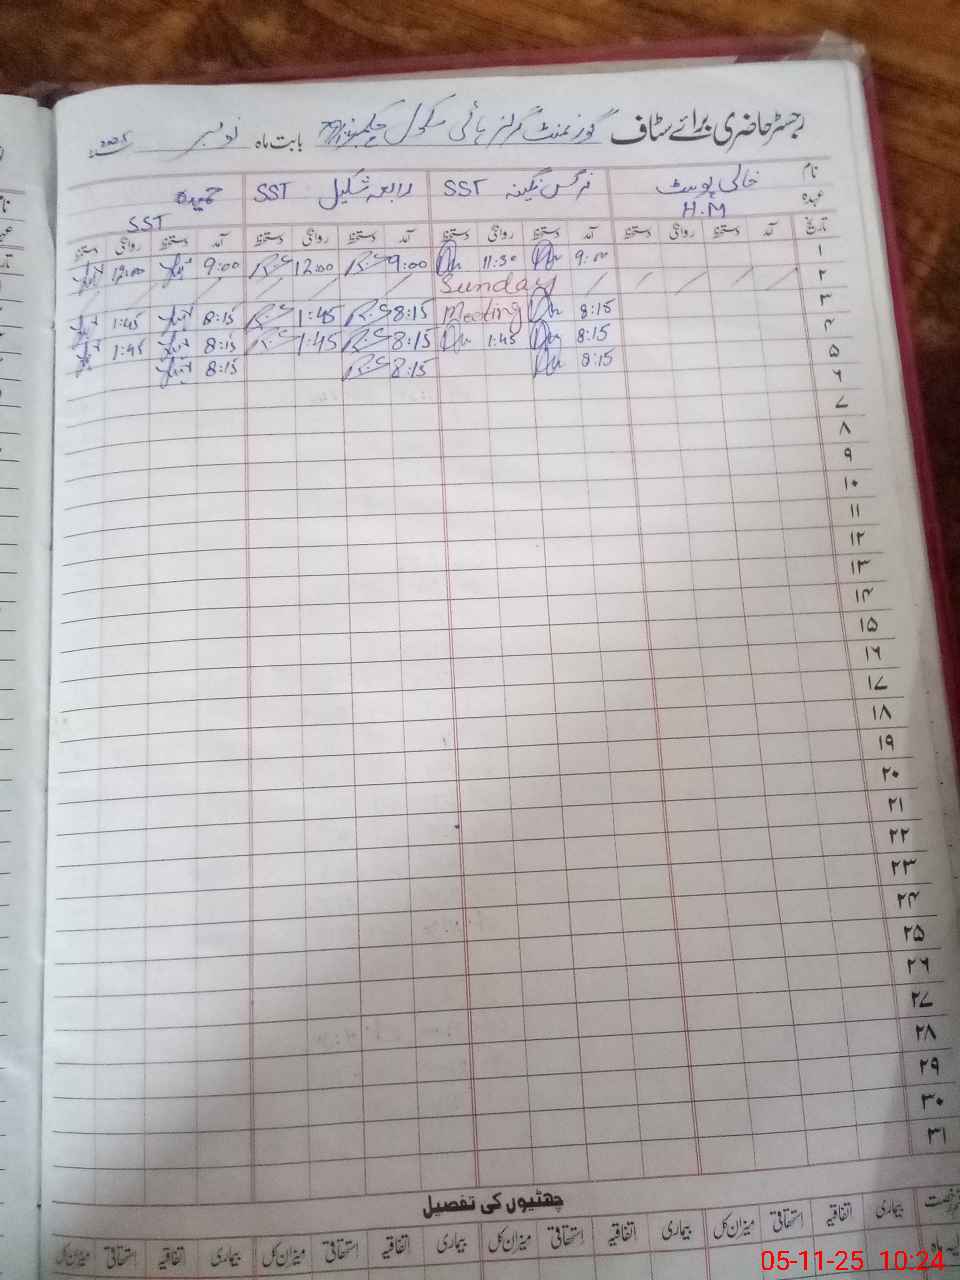 رجسٹر حاضری برائے سٹاف گورنمنٹ گرلز ہائی سکول بابت ماہ نومبر 2025ء
نام خالی پوسٹ نرگس نگینہ SST رابعہ شکیل SST حمیدہ
عہدہ H.M SST
تاریخ آمد دستخط روانگی دستخط آمد دستخط روانگی دستخط آمد دستخط روانگی دستخط آمد دستخط روانگی دستخط
۱ 9:00 11:30 9:00 12:00 9:00 12:00
۲ Sunday
۳ 8:15 Meeting 8:15 1:45 8:15 1:45
۴ 8:15 1:45 8:15 1:45 8:15 1:45
۵ 8:15 8:15 8:15
۶
۷
۸
۹
۱۰
۱۱
۱۲
۱۳
۱۴
۱۵
۱۶
۱۷
۱۸
۱۹
۲۰
۲۱
۲۲
۲۳
۲۴
۲۵
۲۶
۲۷
۲۸
۲۹
۳۰
۳۱
چھٹیوں کی تفصیل
رخصت بیماری اتفاقیہ استحقاقی میزان کل بیماری اتفاقیہ استحقاقی میزان کل بیماری اتفاقیہ استحقاقی میزان کل بیماری اتفاقیہ استحقاقی میزان کل
ماہ
05-11-25 10:24